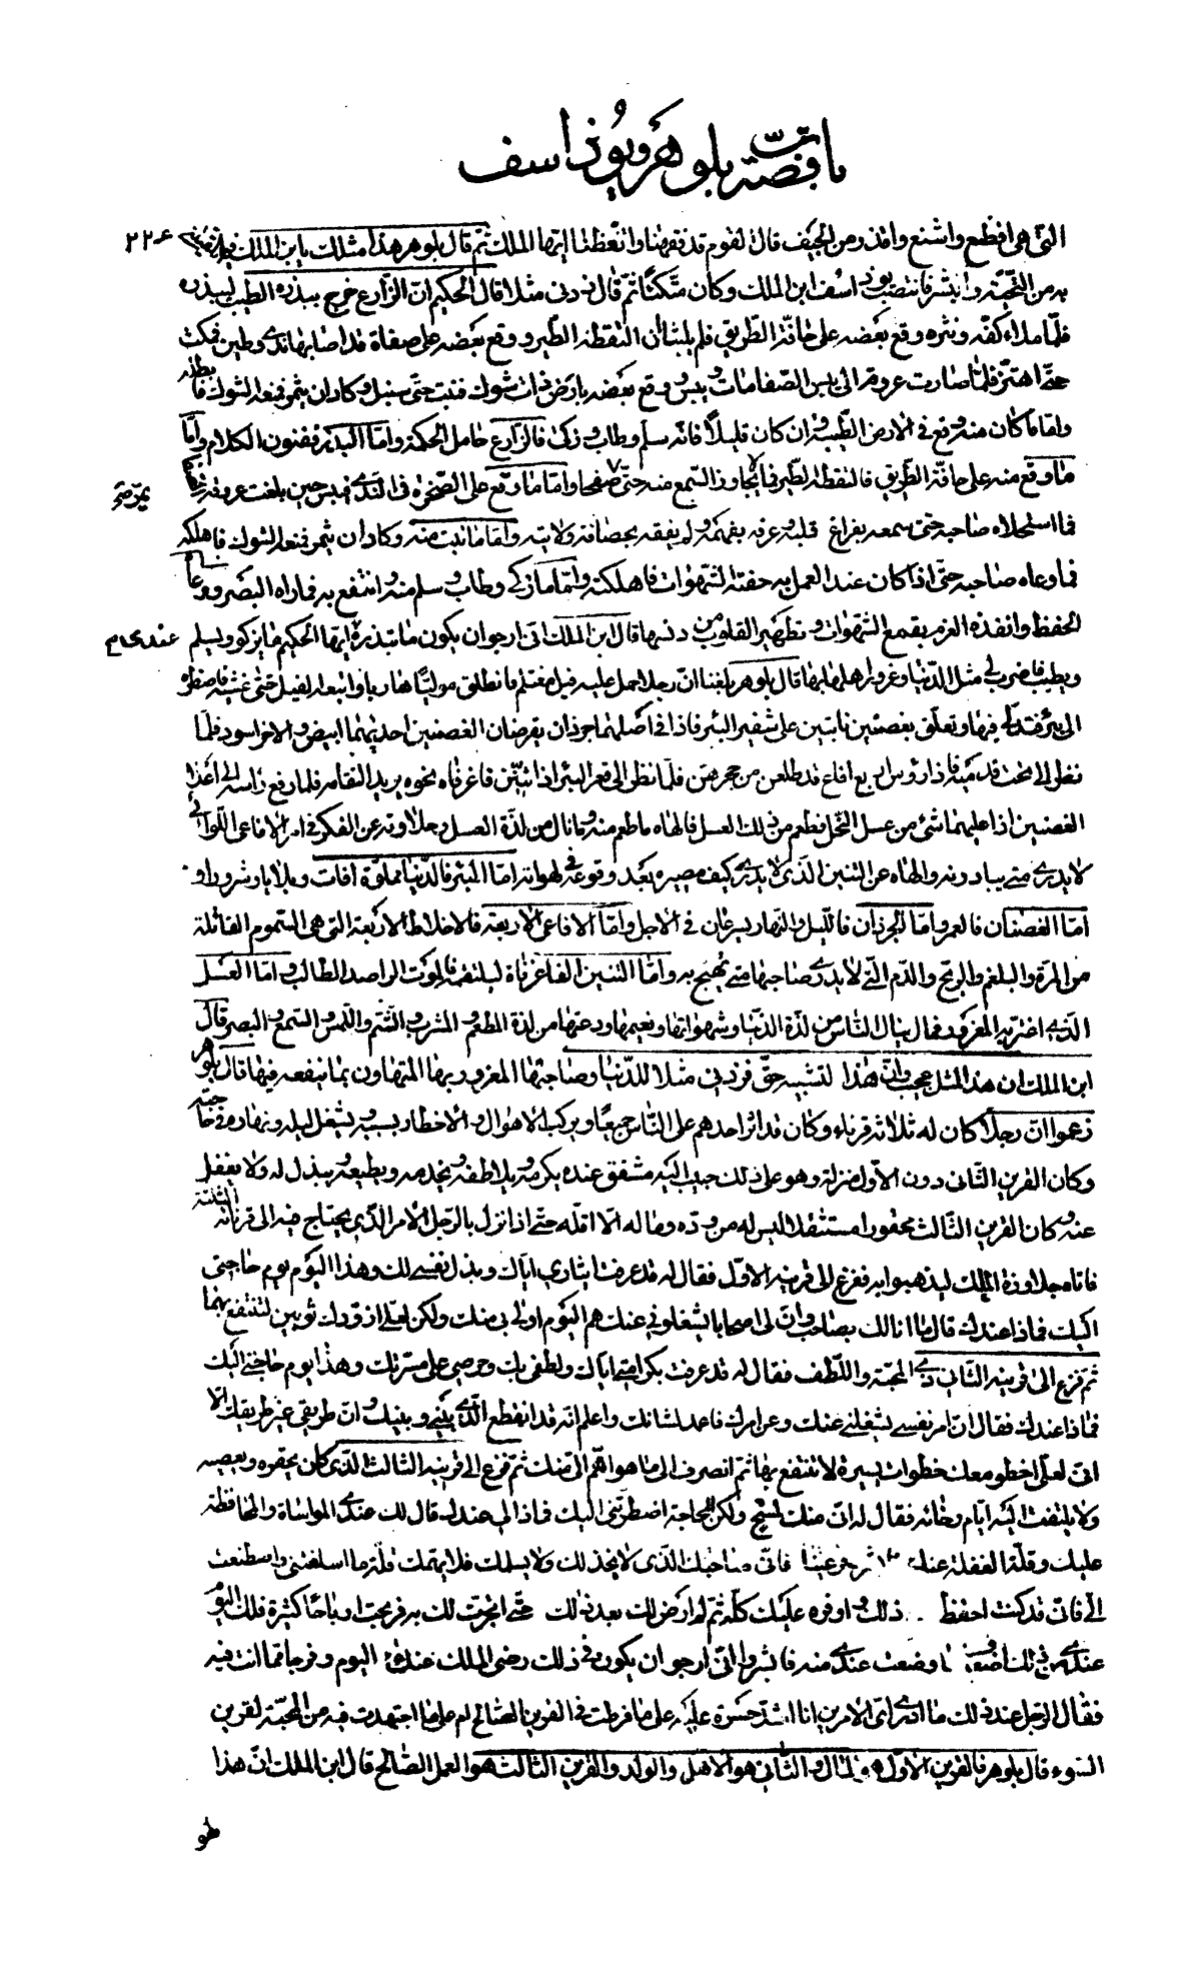 باب قصة بلوهر ويوذاسف
٢٢٤
التى هى افظع واشنع واقذر من الجيف قال القوم قد فهمنا واتعظنا ايها الملك ثم قال بلوهر هذا مثلك يابن الملك
به من التحية وابشر فانتصب يوذاسف ابن الملك وكان متكئا ثم قال زدنى مثلا قال الحكيم ان الزارع خرج ببذره الطيب ليبذره
فلما ملاء كفه ونثره وقع بعضه على حافة الطريق فلم يلبث ان التقطه الطير ووقع بعضه على صفاة قد اصابها ندى وطين فمكث
حتى اهتز فلما صارت عروقه الى يبس الصفا مات ويبس ووقع بعضه بارض ذات شوك فنبت حتى سنبل وكاد ان يثمر فمنعه الشوك فابطله
واما ما كان منه وقع فى الارض الطيبة وان كان قليلا فانه سلم وطاب وزكى فالزارع حامل الحكمة واما البذر ففنون الكلام واما
ما وقع منه على حافة الطريق فالتقطه الطير فما لا يجاوز السمع منه حتى يمر صفحا واما ما وقع على الصخرة فى الندى فيبس حين بلغت عروقه
فما استحلاه صاحبه حتى سمعه بفراغ قلبه وعرفه بفهمه ولم يفقه بحصافة ولا نية واما ما نبت منه وكاد ان يثمر فمنعه الشوك فاهلكه
فما وعاه صاحبه حتى اذا كان عند العمل به حفته الشهوات فاهلكته واما ما زكى وطاب وسلم منه وانتفع به فما راه البصر ووعاه
الحفظ وانفذه العزم بقمع الشهوات وتطهير القلوب من دنسها قال ابن الملك انى ارجو ان يكون ما تبذره ايها الحكيم ما يزكو ويسلم
ويطيب فاضرب لى مثل الدنيا وغرور اهلها بها قال بلوهر بلغنا ان رجلا حمل عليه فيل مغتلم فانطلق موليا هاربا واتبعه الفيل حتى غشيه فاضطره
الى بئر فتدلى فيها وتعلق بغصنين نابتين على شفير البئر فاذا فى اصلهما جرذان يقرضان الغصنين احدهما ابيض والاخر اسود فلما
نظر الى تحت قدميه فاذا رؤس اربع افاع قد طلعن من جحرهن فلما نظر الى قعر البئر اذا بتنين فاغر فاه نحوه يريد التقامه فلما رفع راسه الى اعلا
الغصنين اذا عليهما شئ من عسل النحل فطعم من ذلك العسل فالهاه ما طعم منه وما نال من لذة العسل وحلاوته عن الفكر فى امر الافاعى اللواتى
لا يدرى متى يبادرنه والهاه عن التنين الذى لا يدرى كيف مصيره بعد وقوعه فى لهواته اما البئر فالدنيا مملوة افات وبلايا وشرور او
اما الغصنان فالعمر واما الجرذان فالليل والنهار يسرعان فى الاجل واما الافاعى الاربعة فالاخلاط الاربعة التى هى السموم القاتلة
من المرة والبلغم والريح والدم التى لا يدرى صاحبها متى تهيج به واما التنين الفاغر فاه ليلتقمه فالموت الراصد الطالب واما العسل
الذى اغتر به المغرور فما ينال الناس من لذة الدنيا وشهواتها ونعيمها ودعتها من لذة المطعم والمشرب والشم واللمس والسمع والبصر قال
ابن الملك ان هذا المثل عجيب وان هذا لتشبيه حق فزدنى مثلا للدنيا وصاحبها المغرور بها المتهاون بما ينفعه فيها قال بلوهر
زعموا ان رجلا كان له ثلاثة قرناء وكان قد اثر احدهم على الناس جميعا ويركب الاهوال والاخطار بسببه ويشغل ليله ونهاره فى حاجته
وكان القرين الثانى دون الاول منزلة وهو على ذلك حبيب اليه مشفق عنده يكرمه ويلاطفه ويخدمه ويطيعه ويبذل له ولا يغفل
عنه وكان القرين الثالث محقورا مستثقلا ليس له من وده وماله الا اقله حتى اذا نزل بالرجل الامر الذى يحتاج فيه الى قرنائه الثلثة
فاتاه جلاوزة الملك ليذهبوا به ففزع الى قرينه الاول فقال له قد عرفت ايثارى اياك وبذل نفسى لك وهذا اليوم يوم حاجتى
اليك فماذا عندك قال ما انا لك بصاحب وان لى اصحابا يشغلونى عنك هم اليوم اولى بى منك ولكن لعلى ازودك ثوبين لتنتفع بهما
ثم فزع الى قرينه الثانى ذى المحبة واللطف فقال له قد عرفت كرامتى اياك ولطفى بك وحرصى على مسرتك وهذا يوم حاجتى اليك
فماذا عندك فقال ان امر نفسى يشغلنى عنك وعن امرك فاعمد لشانك واعلم انه قد انقطع الذى بينى وبينك وان طريقى غير طريقك الا
انى لعلى اخطو معك خطوات يسيرة لا تنتفع بها ثم انصرف الى ما هو اهم الى منك ثم فزع الى قرينه الثالث الذى كان يحقره ويعصيه
ولا يلتفت اليه ايام رخائه فقال له انى منك لمستح ولكن الحاجة اضطرتنى اليك فماذا لى عندك قال لك عندى المواساة والمحافظة
عليك وقلة الغفلة عنك فابشر وقر عينا فانى صاحبك الذى لا يخذلك ولا يسلمك فلا يهمك قلة ما اسلفتنى واصطنعت
الى فانى قد كنت احفظ ذلك واوفره عليك كله ثم لم ارض لك بعد ذلك حتى اتجرت لك به فربحت ارباحا كثيرة فلك اليوم
عندى من ذلك اضعاف ما وضعت عندى منه فابشر وانى ارجو ان يكون فى ذلك رضى الملك عنك اليوم وفرجا مما انت فيه
فقال الرجل عند ذلك ما ادرى اى الامرين انا اشد حسرة عليه على ما فرطت فى القرين الصالح ام على ما اجتهدت فيه من المحبة لقرين
السوء قال بلوهر فالقرين الاول هو المال والثانى هو الاهل والولد والقرين الثالث هو العمل الصالح قال ابن الملك ان هذا
هو